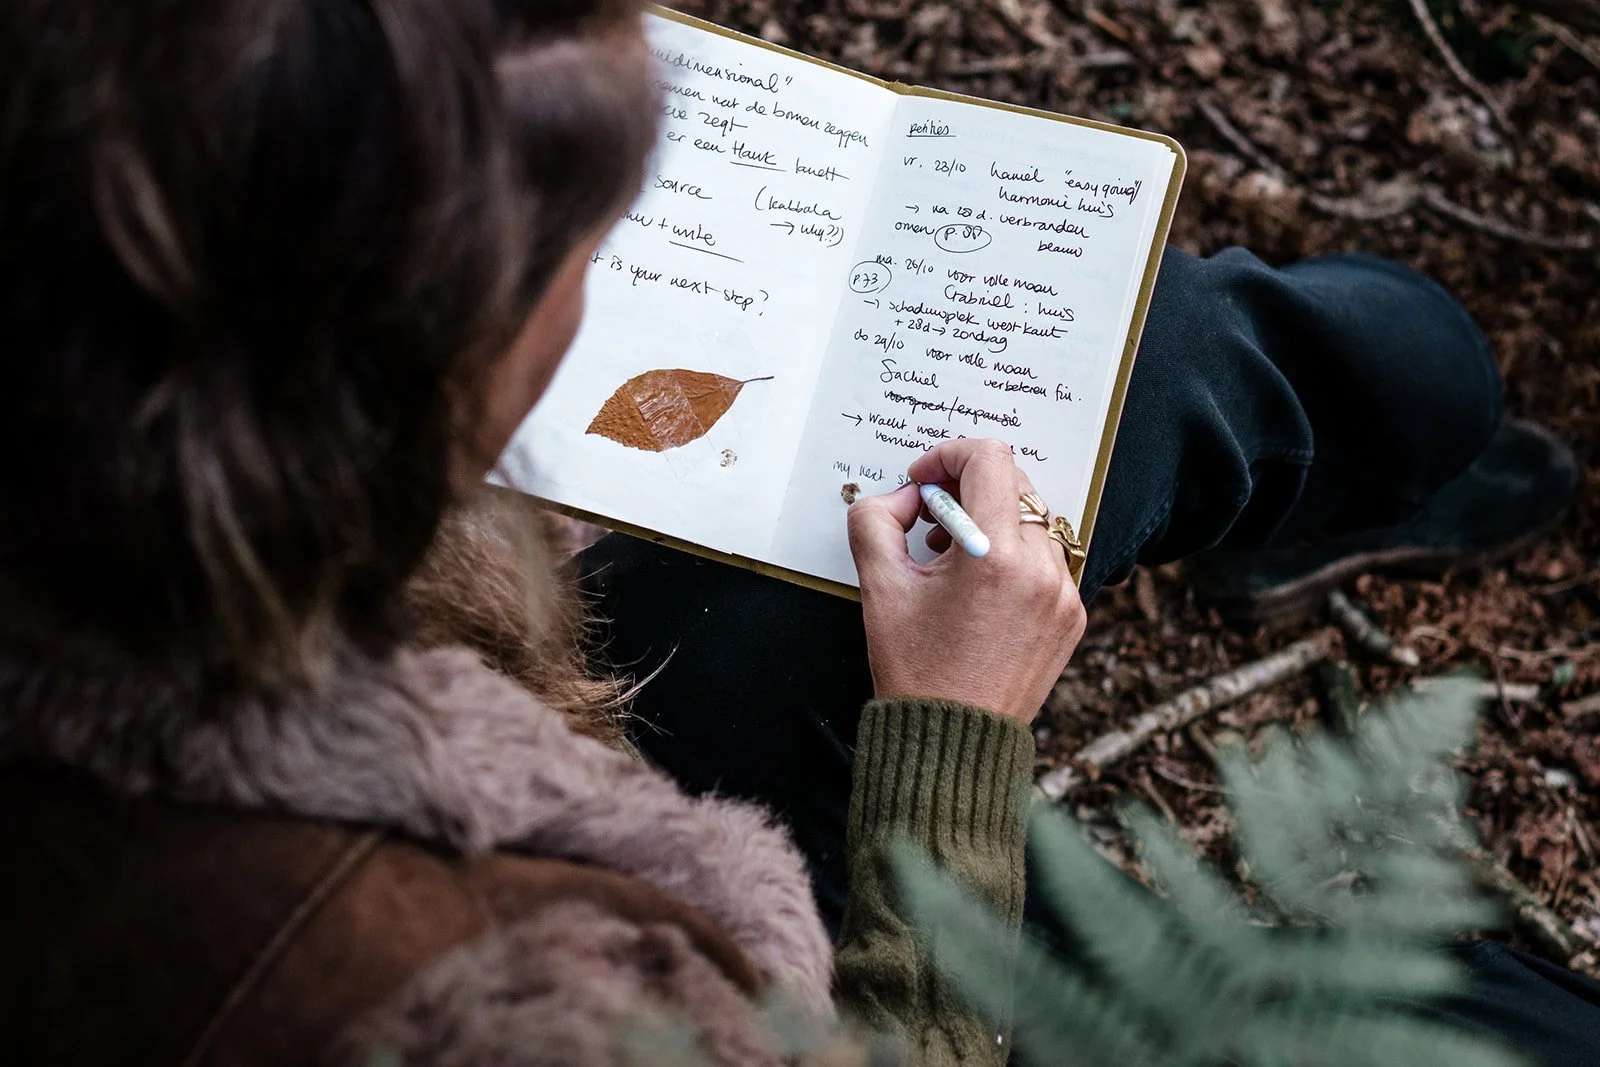 idimensional"
nemen wat de bomen zeggen
zegt
er een Hawk landt
source (kabbala
→ why??)
+ unke
is your next step?
petities
vr. 23/10 haniel "easygoing"
harmonie huis
→ na 28 d. verbranden
omen
ma. 26/10 voor volle maan
p 73
Gabriël : huis
→ schaduwplek west kant
+ 28d → zondag
do 29/10 voor volle maan
Sachiel verbeteren fin.
voorspoed/expansie
→ Wacht week en
my next s